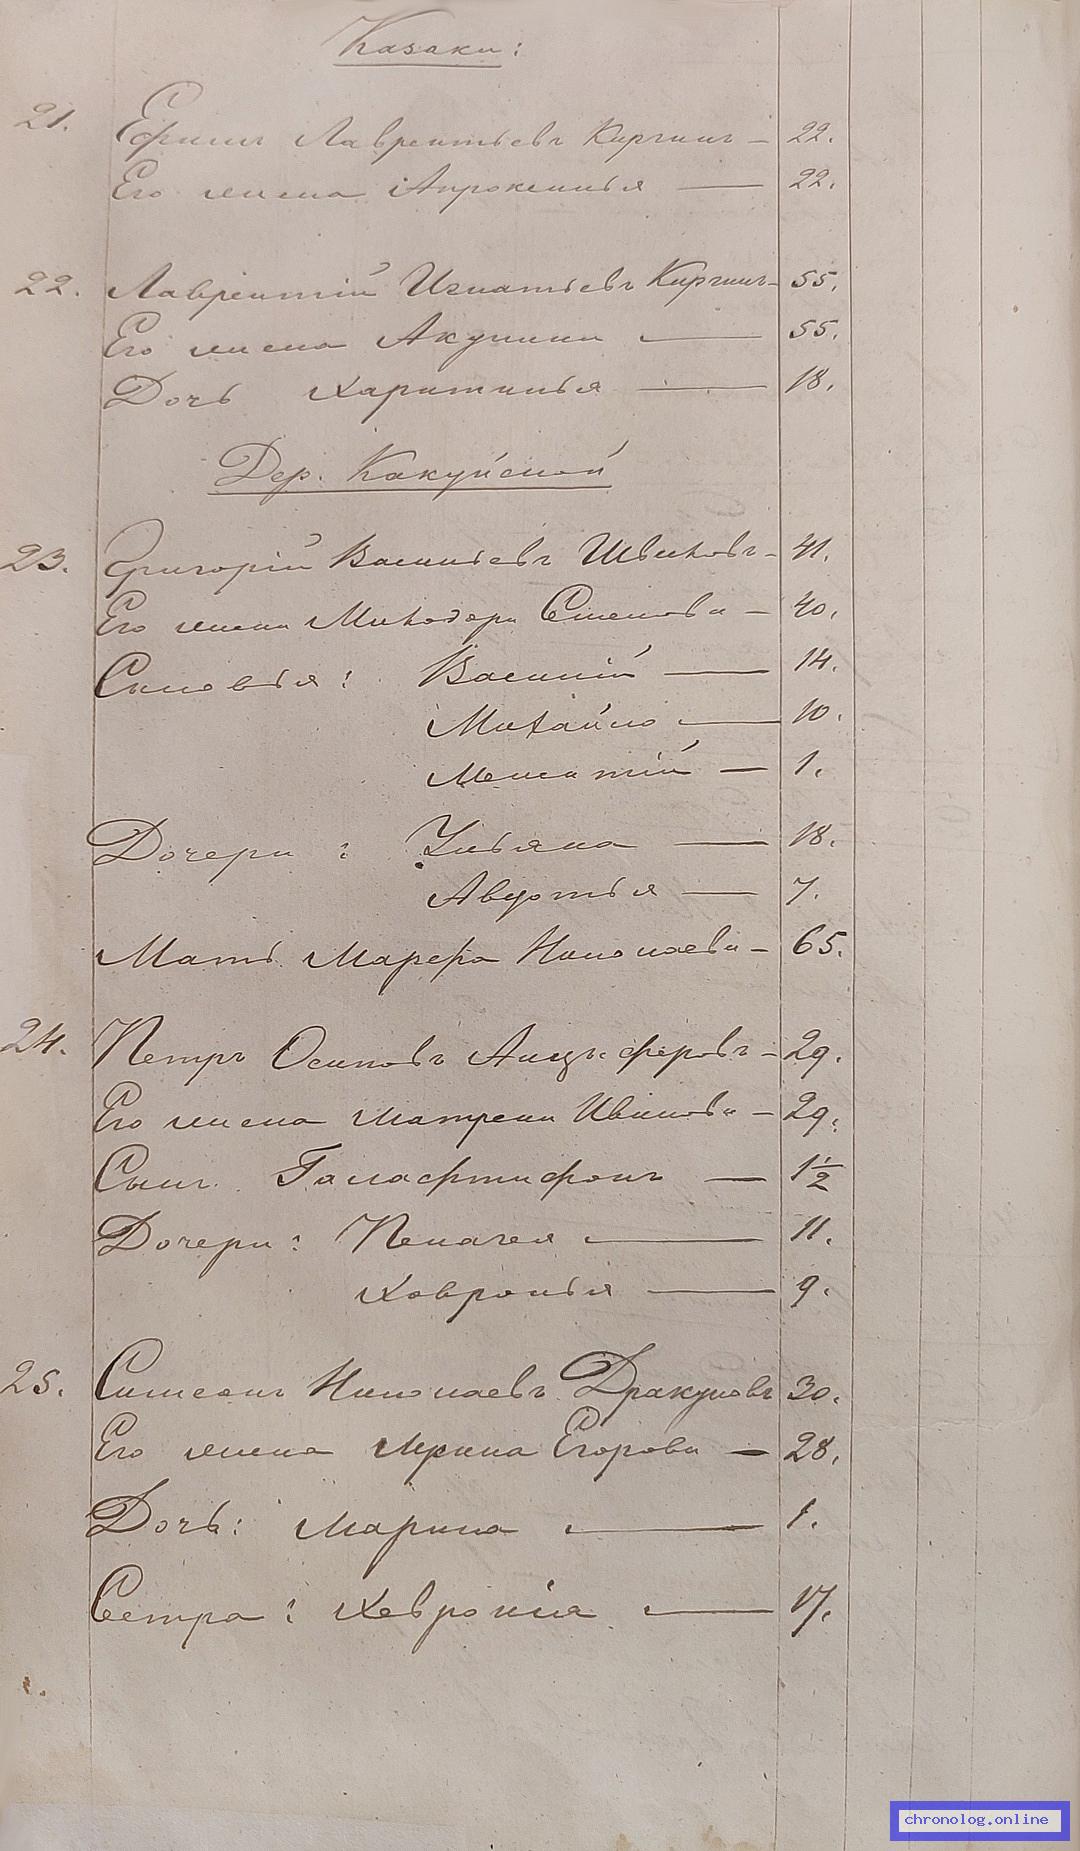 Казаки:
21. Ефимъ Лаврентьевъ Киргинъ — 22.
Его жена Апроксинья — 22.
22. Лаврентій Игнатьевъ Киргинъ — 55.
Его жена Акулина — 55.
Дочь Харитинья — 18.
Дер. Какуйской
23. Григорій Васильевъ Швыковъ — 41.
Его жена Минодора — 40.
Сыновья: Василій — 14.
Михайло — 10.
Мелитій — 1.
Дочери: Ульяна — 18.
Авдотья — 7.
Мать Марфа Николаева — 65.
24. Петръ Осиповъ Анцыферовъ — 29.
Его жена Матрена Иванова — 29.
Сынъ — 1½
Дочери: Пелагея — 11.
Хавронья — 9.
25. Симеонъ Николаевъ Дракуновъ 30.
Его жена Ирина Егорова — 28.
Дочь: Марина — 1.
Сестра: Хеврония — 17.
chronolog.online